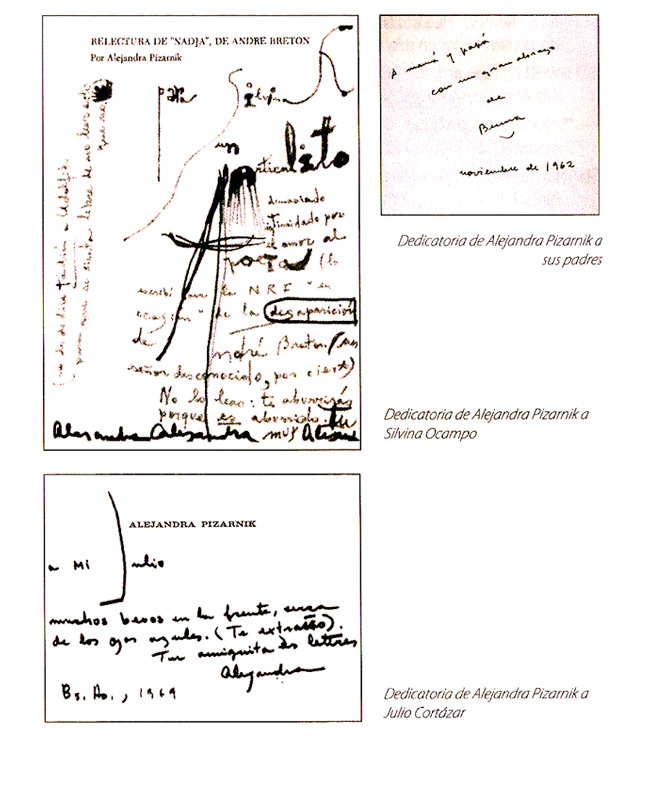 RELECTURA DE "NADJA", DE ANDRE BRETON
Por Alejandra Pizarnik
para Silvina
un
articulito
demasiado
intimidado por
el amor al
poeta (lo
escribí para la NRF "en
ocasión" de la desaparición
de André Breton (un
señor desconocido, por cierto)
No lo leas: te aburrirás
porque es aburrido. Tu
Alejandra Alejandra muy
(no se dedica también a Adolfo
para que se sienta libre de no leer esto
A mamá y papá
con un gran abrazo
de
Buma
noviembre de 1962
Dedicatoria de Alejandra Pizarnik a
sus padres
Dedicatoria de Alejandra Pizarnik a
Silvina Ocampo
ALEJANDRA PIZARNIK
a Mi Julio
muchos besos en la frente, cerca
de los ojos azules. (Te extraño).
Tu amiguita ès lettres
Alejandra
Bs. As., 1969
Dedicatoria de Alejandra Pizarnik a
Julio Cortázar